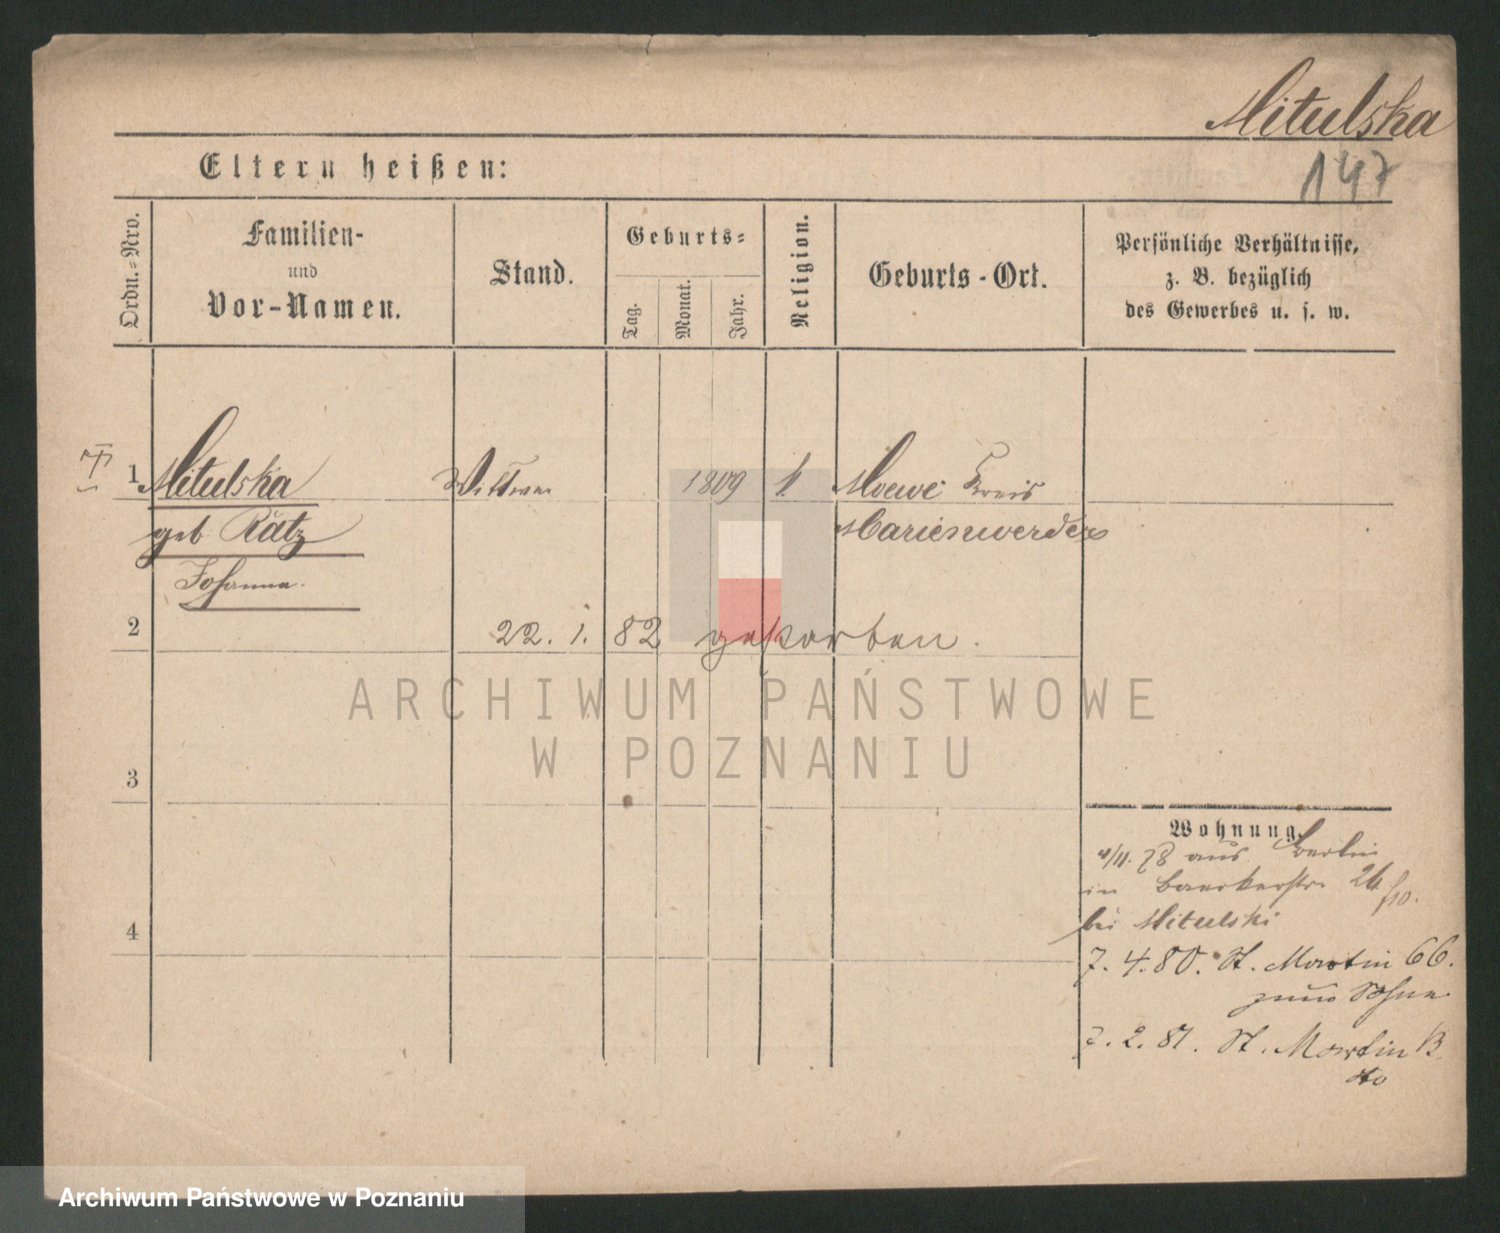 Mitulska
147
Eltern heißen:
Ordn.-Nro.
Familien-
und
Vor-Namen.
Stand.
Geburts-
Tag.
Monat.
Jahr.
Religion.
Geburts-Ort.
Persönliche Verhältnisse,
z. B. bezüglich
des Gewerbes u. s. w.
1 Mitulska Wittwe 1809 Moewe Kreis
geb. Ratz Marienwerder
Johanna.
2 22. 1. 82 gestorben.
ARCHIWUM PAŃSTWOWE
W POZNANIU
3
4
Wohnung.
4/11. 78 aus Berlin
in Baeckerstr. 26
bei Mitulski
7. 4. 80. St. Martin 66.
zum Sohne
2. 81. St. Martin
Archiwum Państwowe w Poznaniu